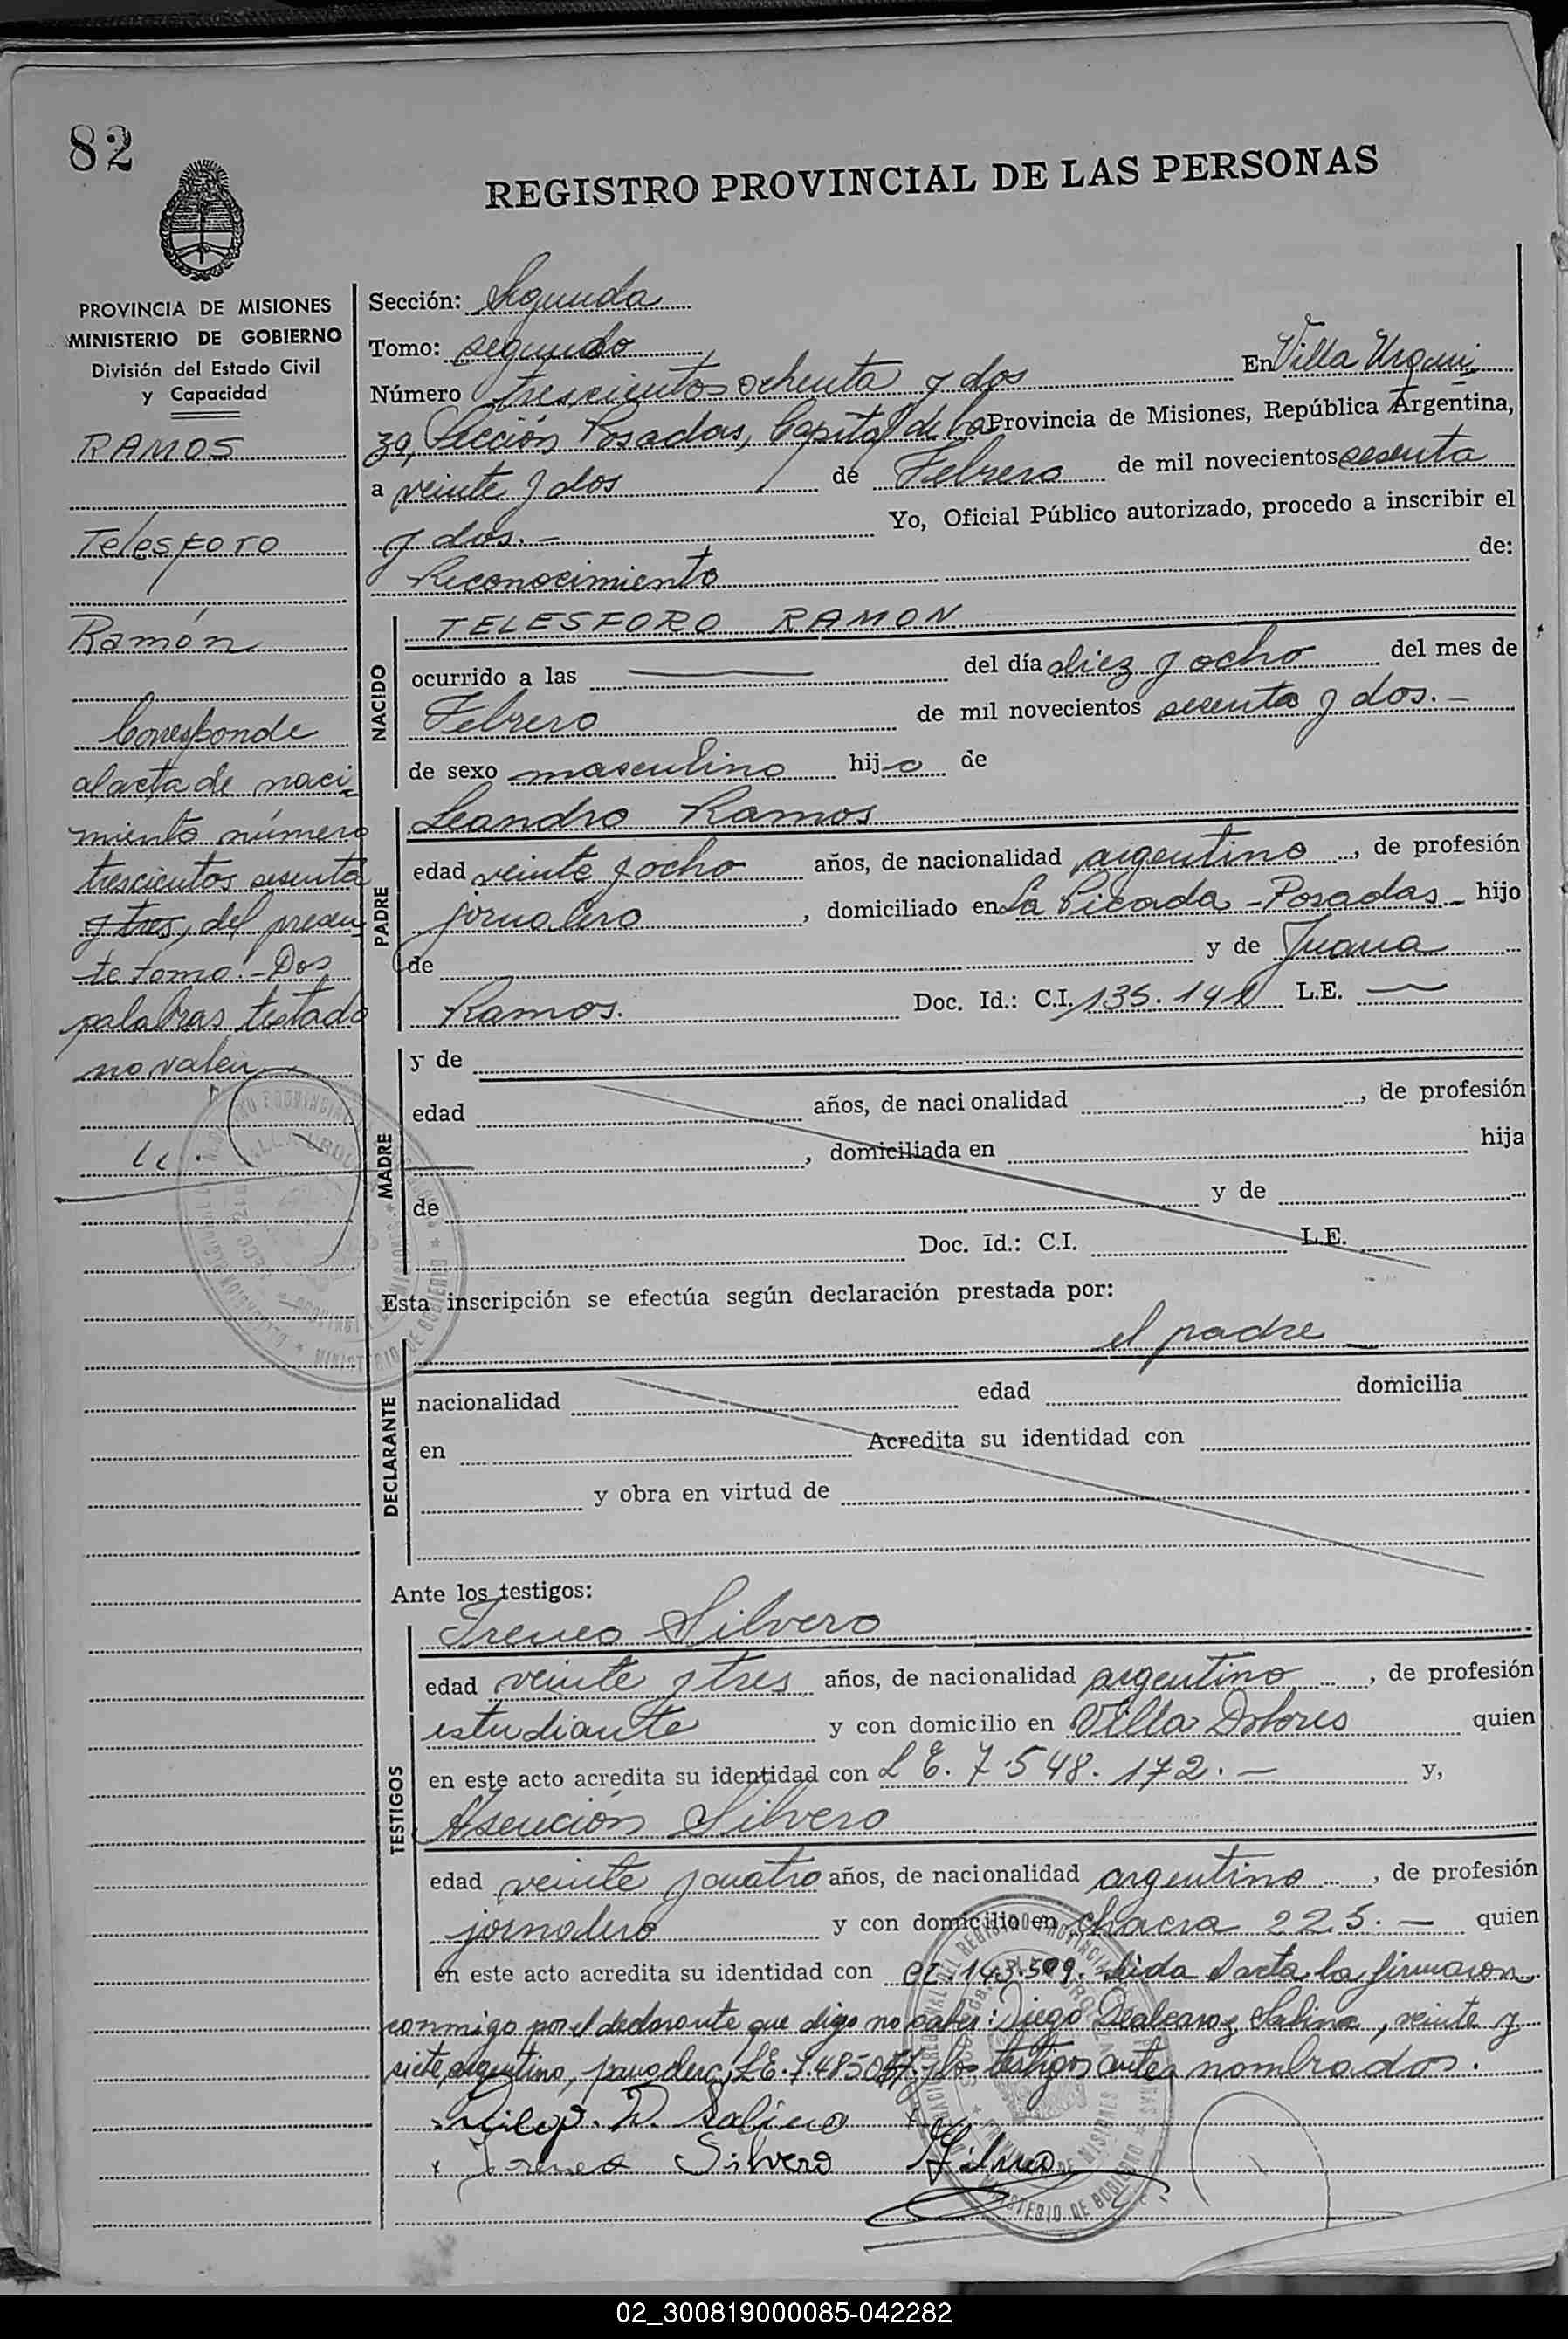 82
REGISTRO PROVINCIAL DE LAS PERSONAS
PROVINCIA DE MISIONES
MINISTERIO DE GOBIERNO
División del Estado Civil
y Capacidad
RAMOS
Telésforo
Ramón
Corresponde
al acta de naci-
miento número
trescientos sesenta
y tres, del presen-
te tomo.- Dos
palabras testado
no valen
Sección: Segunda
Tomo: segundo
Número trescientos ochenta y dos En Villa Urqui-
za, Sección Posadas, Capital de la Provincia de Misiones, República Argentina,
a veinte y dos de Febrero de mil novecientos sesenta
y dos.- Yo, Oficial Público autorizado, procedo a inscribir el
Reconocimiento de:
NACIDO
TELESFORO RAMON
ocurrido a las del día diez y ocho del mes de
Febrero de mil novecientos sesenta y dos.-
de sexo masculino hijo de
PADRE
Leandro Ramos
edad veinte y ocho años, de nacionalidad argentino, de profesión
jornalero, domiciliado en La Picada - Posadas - hijo
de y de Juana
Ramos. Doc. Id.: C.I. 135.141 L.E. —
MADRE
y de
edad años, de nacionalidad , de profesión
, domiciliada en hija
de y de
Doc. Id.: C.I. L.E.
Esta inscripción se efectúa según declaración prestada por:
el padre
DECLARANTE
nacionalidad edad domicilia
en Acredita su identidad con
y obra en virtud de
Ante los testigos:
TESTIGOS
Ireneo Silvero
edad veinte y tres años, de nacionalidad argentino, de profesión
estudiante y con domicilio en Villa Dolores quien
en este acto acredita su identidad con L E. 7.548.172.- y,
Asención Silvero
edad veinte y cuatro años, de nacionalidad argentino, de profesión
jornalero y con domicilio en chacra 225.- quien
en este acto acredita su identidad con CI. 143.509. Leida el acta la firmaron
conmigo por el declarante que dijo no saber: Diego Dealcaraz Salina, veinte y
siete, argentino, panadero, LE. y los testigos antes nombrados.
Diego. D. Salina
Ireneo Silvero
02_300819000085-042282